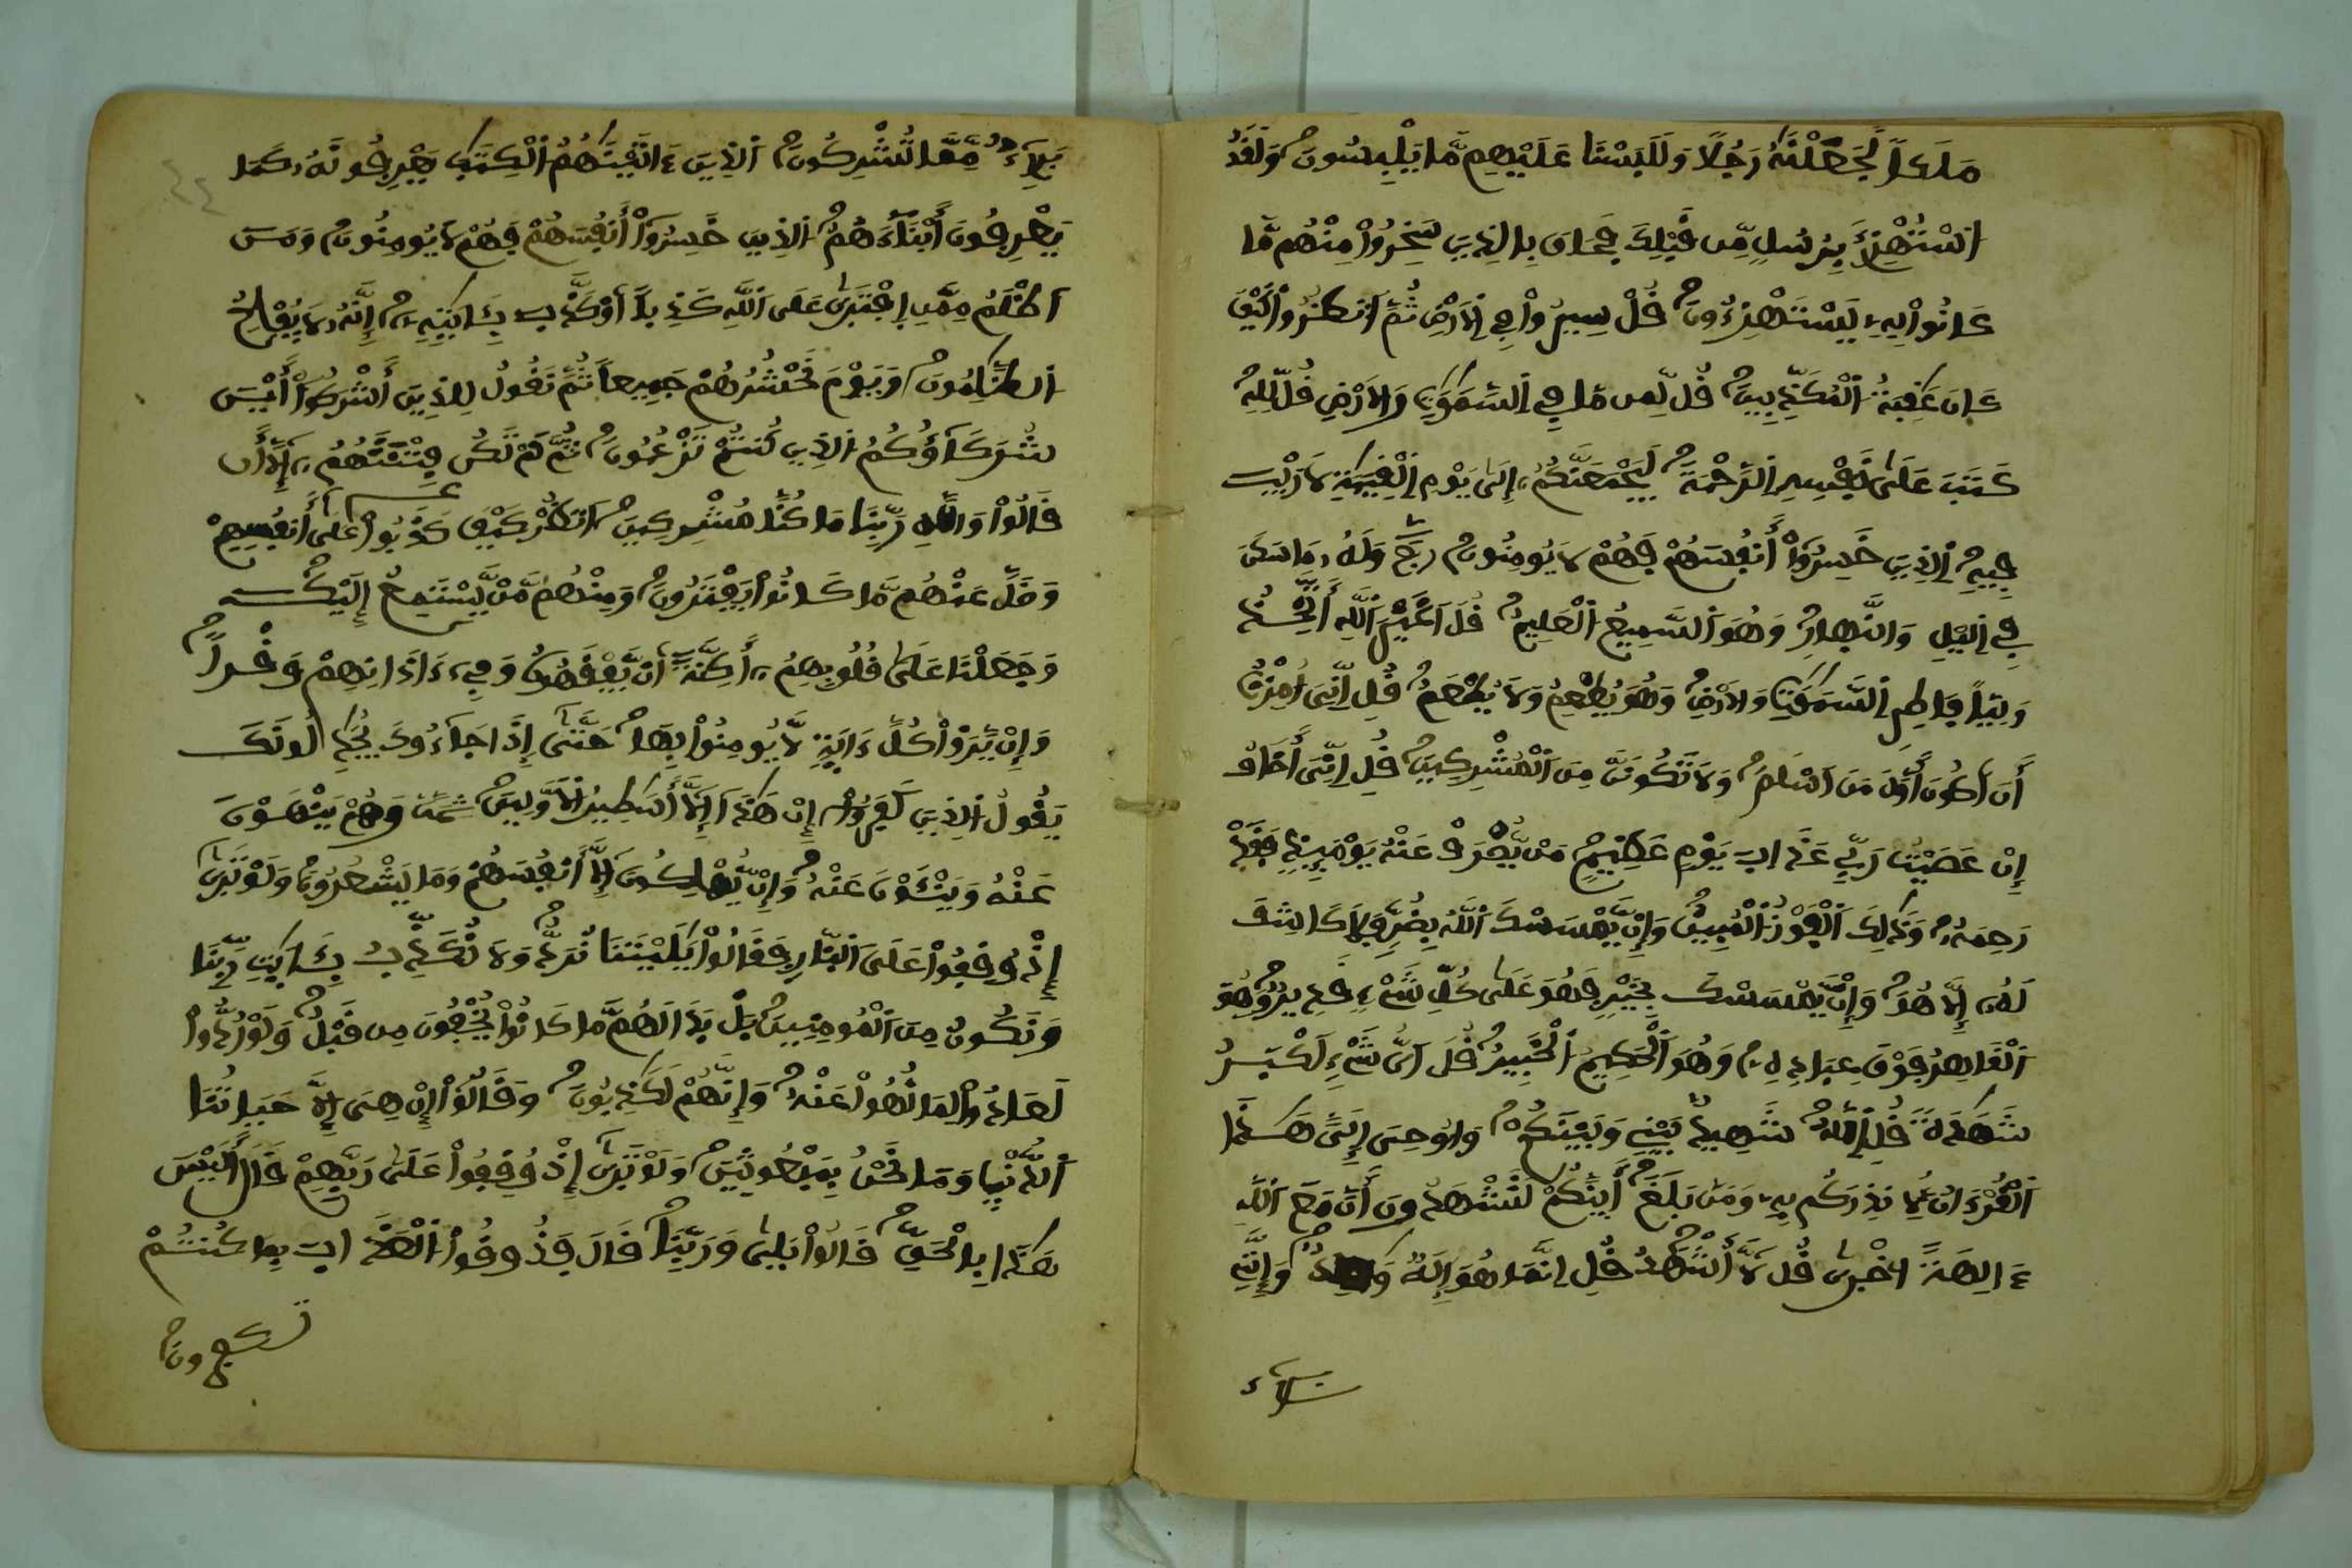 مَلَكاً لَّجَعَلْنَٰهُ رَجُلًا وَلَلَبَسْنَا عَلَيْهِم مَّا يَلْبِسُونَ وَلَقَدُ
اسْتُهْزِئَ بِرُسُلٍ مِّن قَبْلِكَ فَحَاقَ بِالذِينَ سَخِرُواْ مِنْهُم مَّا
كَانُواْ بِهِۦ يَسْتَهْزِءُونَ قُلْ سِيرُواْ فِي الَارْضِ ثُمَّ اَنظُرُواْ كَيْفَ
كَانَ عَٰقِبَةُ اُلْمُكَذِّبِينَ قُل لِّمَن مَّا فِي اِلسَّمَٰوَٰتِ وَالَارْضِ قُل لِّلهِ
كَتَبَ عَلَىٰ نَفْسِهِ اِلرَّحْمَةَ لَيَجْمَعَنَّكُمُۥٓ إِلَىٰ يَوْمِ اِلْقِيَٰمَةِ لَا رَيْبَ
فِيهِ اِلذِينَ خَسِرُوٓاْ أَنفُسَهُمْ فَهُمْ لَا يُومِنُونَ وَلَهُۥ مَا سَكَنَ
فِي اِليْلِ وَالنَّهِارِ وَهُوَ اَلسَّمِيعُ اُلْعَلِيمُ قُلَ اَغَيْرَ اَللَّهِ أَتَّخِذُ
وَلِيّاً فَاطِرِ اِلسَّمَٰوَٰتِ وَالَارْضِ وَهُوَ يُطْعِمُ وَلَا يُطْعَمُ قُلِ اِنِّيَ أُمِرْتُ
أَنَ اَكُونَ أَوَّلَ مَنَ اَسْلَمَ وَلَا تَكُونَنَّ مِنَ اَلْمُشْرِكِينَ قُلِ اِنِّيَ أَخَافُ
إِنْ عَصَيْتُ رَبِّي عَذَابَ يَوْمٍ عَظِيمٍ مَّنْ يُّصْرَفْ عَنْهُ يَوْمَئِذٍ فَقَدْ
رَحِمَهُۥ وَذَٰلِكَ اَلْفَوْزُ اُلْمُبِينُ وَإِنْ يَّمْسَسْكَ اَللَّهُ بِضُرٍّ فَلَا كَاشِفَ
لَهُۥٓ إِلَّا هُوَ وَإِنْ يَّمْسَسْكَ بِخَيْرٍ فَهُوَ عَلَىٰ كُلِّ شَيْءٍ قَدِيرٌ وَهُوَ
اَلْقَاهِرُ فَوْقَ عِبَادِهِۦ وَهُوَ اَلْحَكِيمُ اُلْخَبِيرُ قُلَ اَيُّ شَيْءٍ اَكْبَرُ
شَهَٰدَةً قُلِ اِللَّهُ شَهِيدٌ بَيْنِي وَبَيْنَكُمْ وَأُوحِيَ إِلَيَّ هَٰذَا
اَلْقُرْءَانُ لِأُنذِرَكُم بِهِۦ وَمَنۢ بَلَغَ أَئِنَّكُمْ لَتَشْهَدُونَ أَنَّ مَعَ اَللَّهِ
ءَالِهَةً اُخْرَىٰ قُل لَّآ أَشْهَدُ قُلِ اِنَّمَا هُوَ إِلَٰهٌ وَٰحِدٌ وَإِنَّنِي
بَرِيٓءٌ مِّمَّا تُشْرِكُونَ اَلذِينَ ءَاتَيْنَٰهُمُ اُلْكِتَٰبَ يَعْرِفُونَهُۥ كَمَا
يَعْرِفُونَ أَبْنَآءَهُمُ اُلذِينَ خَسِرُوٓاْ أَنفُسَهُمْ فَهُمْ لَا يُومِنُونَ وَمَنَ
اَظْلَمُ مِمَّنِ اِفْتَرَىٰ عَلَى اَللَّهِ كَذِباً اَوْ كَذَّبَ بِـَٔايَٰتِهِۦٓ إِنَّهُۥ لَا يُفْلِحُ
اُلظَّٰلِمُونَ وَيَوْمَ نَحْشُرُهُمْ جَمِيعاً ثُمَّ نَقُولُ لِلذِينَ أَشْرَكُوٓاْ أَيْنَ
شُرَكَآؤُكُمُ اُلذِينَ كُنتُمْ تَزْعُمُونَ ثُمَّ لَمْ تَكُن فِتْنَتَهُمُۥٓ إِلَّآ أَن
قَالُواْ وَاللَّهِ رَبِّنَا مَا كُنَّا مُشْرِكِينَ اَنظُرْ كَيْفَ كَذَبُواْ عَلَىٰٓ أَنفُسِهِمْ
وَضَلَّ عَنْهُم مَّا كَانُواْ يَفْتَرُونَ وَمِنْهُم مَّنْ يَّسْتَمِعُ إِلَيْكَ
وَجَعَلْنَا عَلَىٰ قُلُوبِهِمُۥٓ أَكِنَّةً اَنْ يَّفْقَهُوهُ وَفِيٓ ءَاذَانِهِمْ وَقْراً
وَإِنْ يَّرَوْاْ كُلَّ ءَايَةٍ لَّا يُومِنُواْ بِهَا حَتَّىٰٓ إِذَا جَآءُوكَ يُجَٰدِلُونَكَ
يَقُولُ اُلذِينَ كَفَرُوٓاْ إِنْ هَٰذَآ إِلَّآ أَسَٰطِيرُ اُلَاوَّلِينَ وَهُمْ يَنْهَوْنَ
عَنْهُ وَيَنْـَٔوْنَ عَنْهُ وَإِنْ يُّهْلِكُونَ إِلَّآ أَنفُسَهُمْ وَمَا يَشْعُرُونَ وَلَوْ تَرَىٰٓ
إِذْ وُقِفُواْ عَلَى اَلنَّارِ فَقَالُواْ يَٰلَيْتَنَا نُرَدُّ وَلَا نُكَذِّبُ بِـَٔايَٰتِ رَبِّنَا
وَنَكُونُ مِنَ اَلْمُومِنِينَ بَلْ بَدَا لَهُم مَّا كَانُواْ يُخْفُونَ مِن قَبْلُ وَلَوْ رُدُّواْ
لَعَادُواْ لِمَا نُهُواْ عَنْهُ وَإِنَّهُمْ لَكَٰذِبُونَ وَقَالُوٓاْ إِنْ هِيَ إِلَّا حَيَاتُنَا
اَلدُّنْيَا وَمَا نَحْنُ بِمَبْعُوثِينَ وَلَوْ تَرَىٰٓ إِذْ وُقِفُواْ عَلَىٰ رَبِّهِمْ قَالَ أَلَيْسَ
هَٰذَا بِالْحَقِّ قَالُواْ بَلَىٰ وَرَبِّنَا قَالَ فَذُوقُواْ اُلْعَذَابَ بِمَا كُنتُمْ
تكفرون